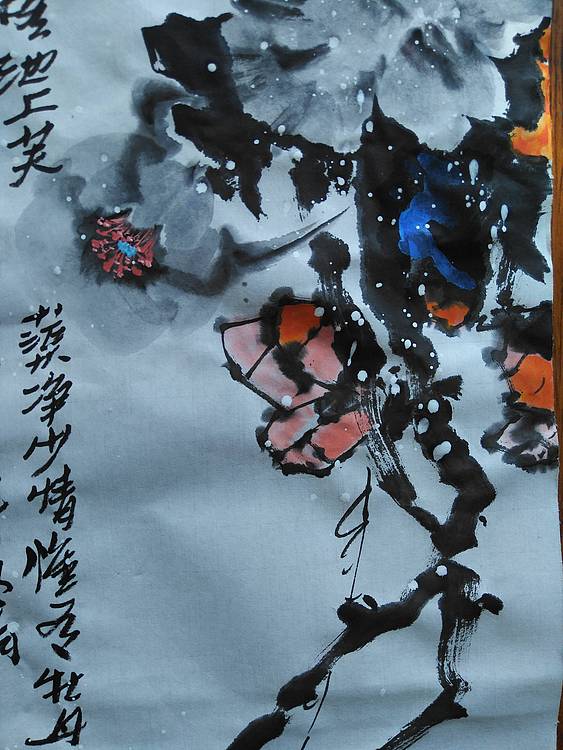 池上芙蕖净少情惟有牡丹